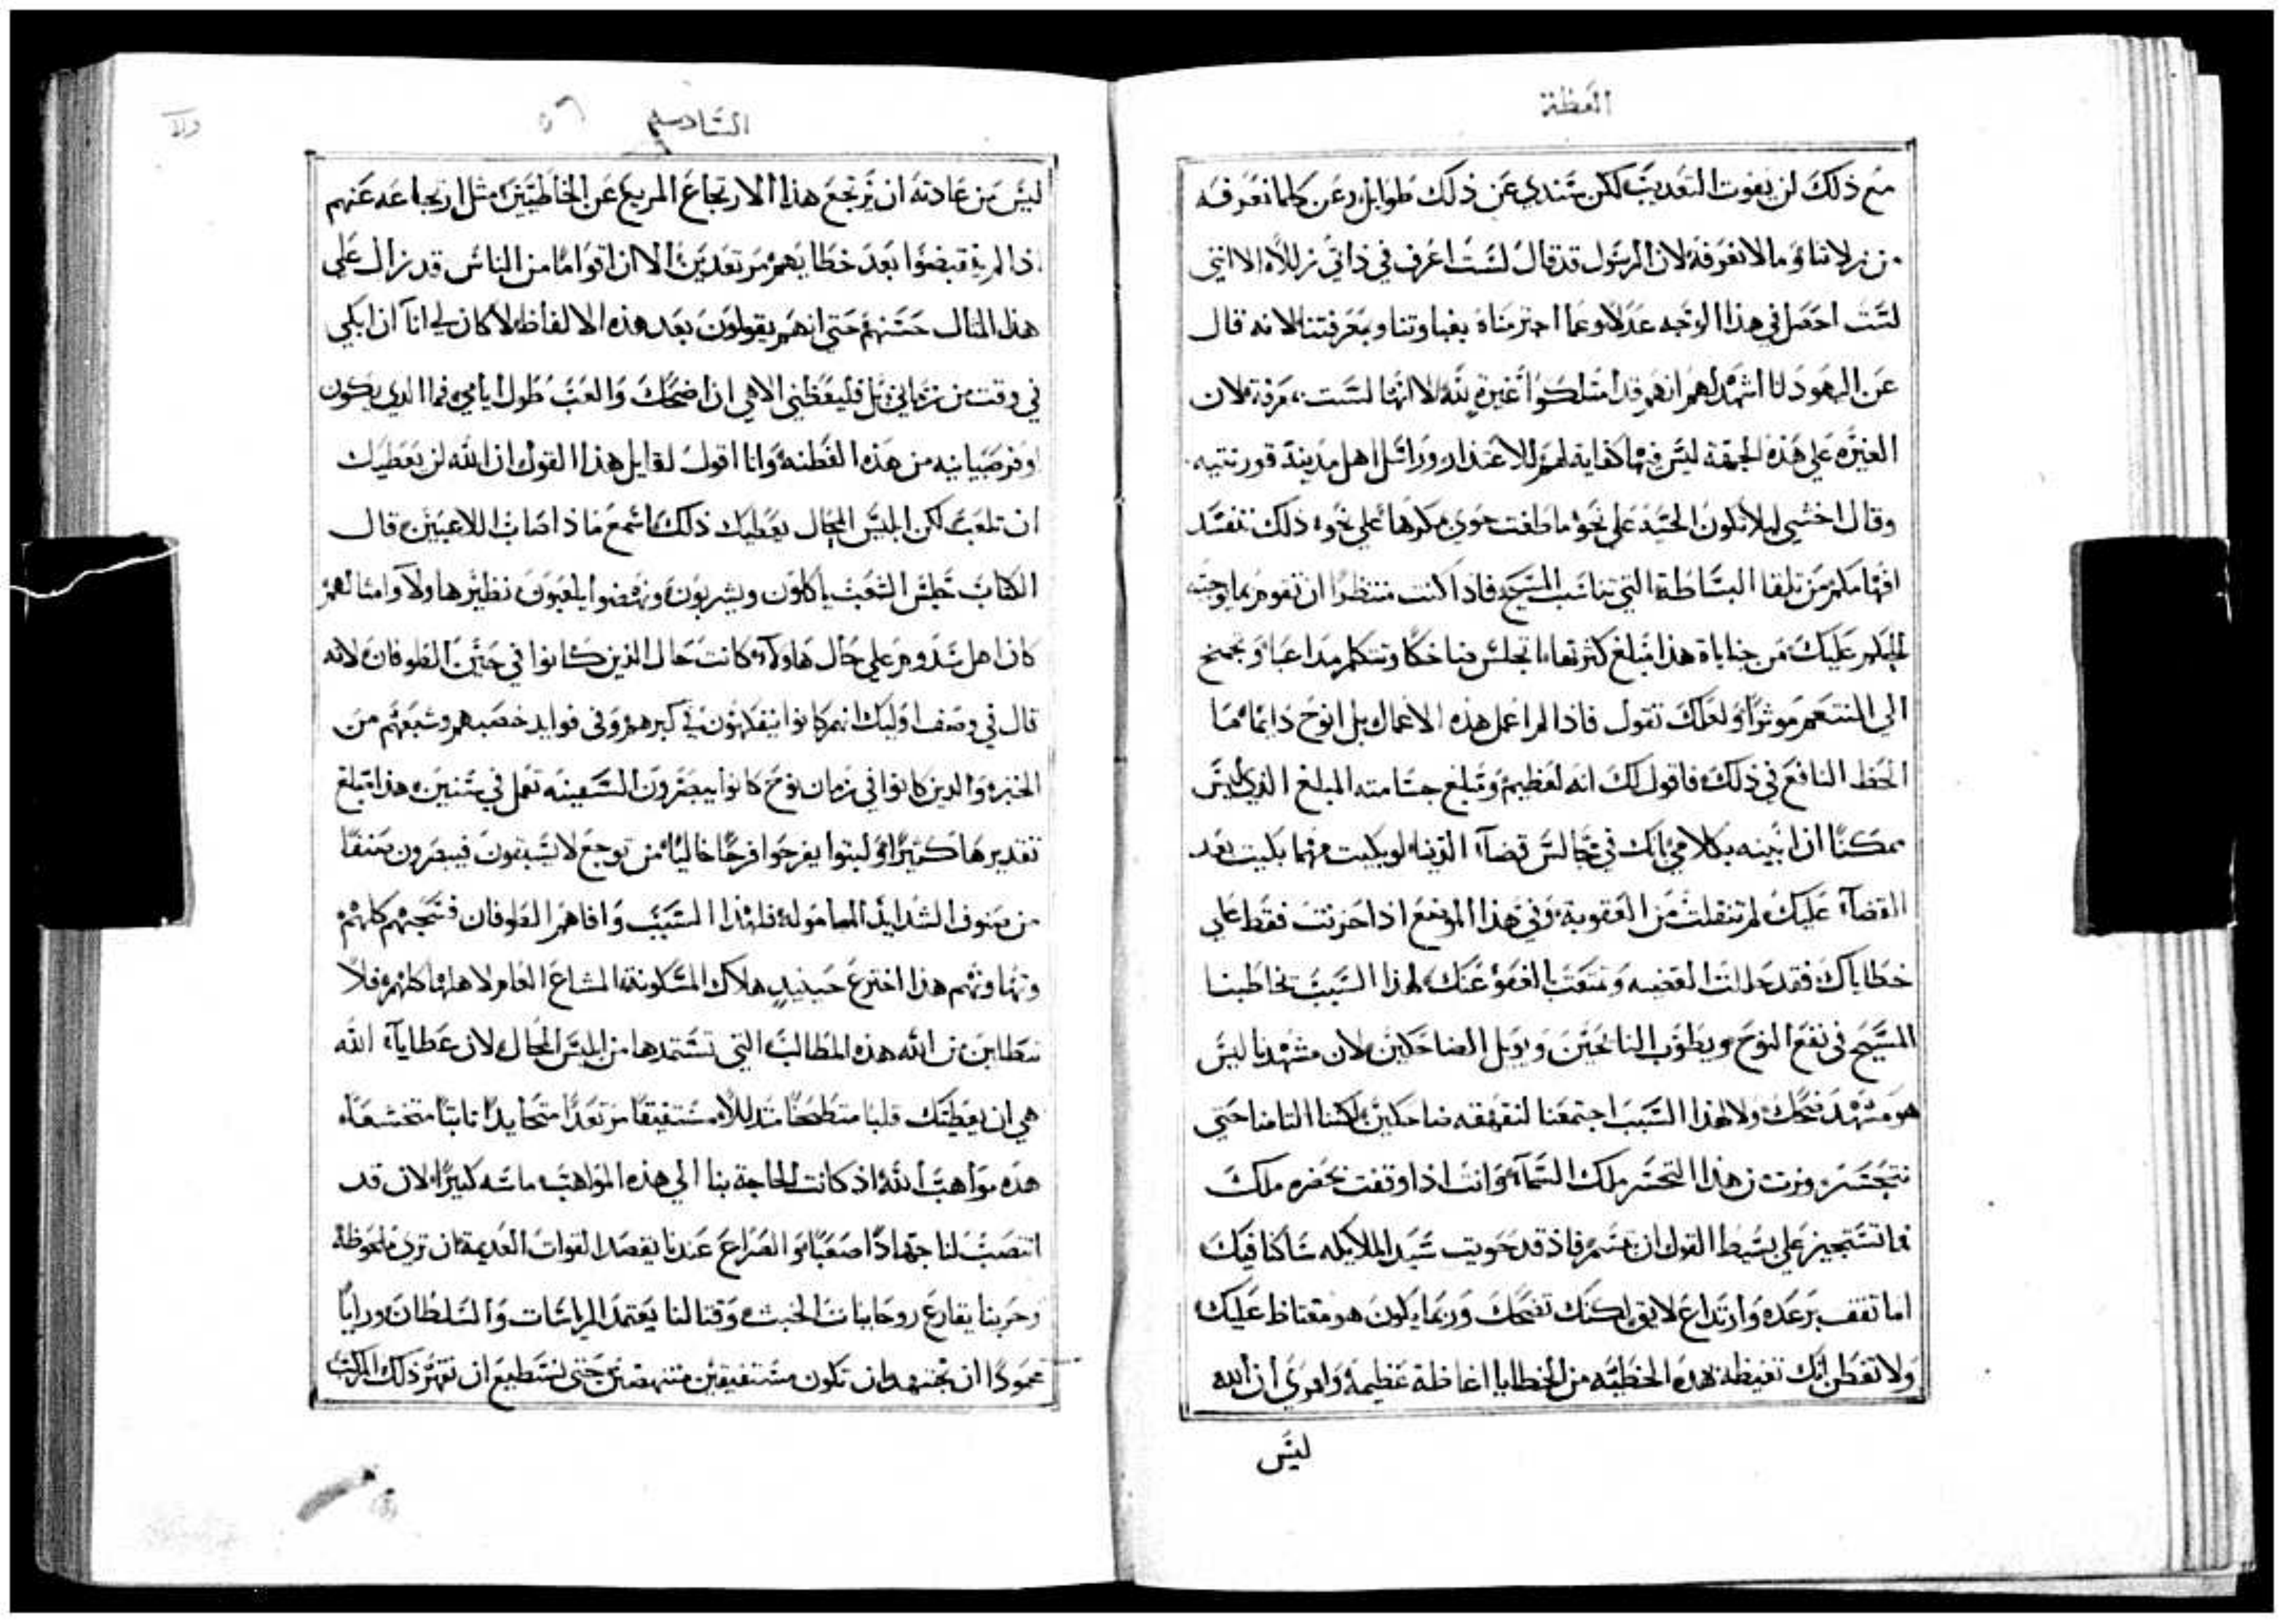 العظة
مع ذلك لن يفوت التعديب لكن سندي عن ذلك طوايل وعن كلما نعرفه
من زلاتنا وما لا نعرفه لان الرسول قد قال لست اعرف في ذاتي زللاً الا انني
لست احصل في هذا الوجه عدلاً وعما اجترمناه بغباوتنا وبمعرفتنا لانه قال
عن اليهود انا اشهد لهم انهم قد امتلكوا غيرة لله الا انها ليست بمعرفة لان
الغيره علي هذه الجهة ليس فيها كفاية لهم للاعتدار وراسل اهل مدينة قورنتيه
وقال اخشي ليلا تكون الحيه علي نحو ما طغت حوي بمكرها علي نحو ذلك تفسد
افهامكم من تلقا البساطة التي تناسب المسيح فاذا كنت منتظراً ان تقوم بما اوجبه
الحكم عليك من جناياة هذا مبلغ كثرتها اتجلس ضاحكاً وتتكلم مداعباً وتجمح
الي التنعم موثراً ولعلك تقول فاذا لم اعمل هذه الاعمال بل انوح دايما ما
الحظ النافع في ذلك فاقول لك انه لعظيم ومبلغ جسامته المبلغ الذي ليس
ممكنًا ان ابينه بكلامي لانك في مجالس قضآء الدنيا لو بكيت مهما بكيت بعد
القضآء عليك لم تنفلت من العقوبة وفي هذا الموضع اذا حزنت فقط علي
خطاياك فقد حللت القضيه وتمتعت العفو عنك لهذا السبب يخاطبنا
المسيح في نفع النوح ويطوب النائحين ويويل الضاحكين لان مشهدنا ليس
هو مشهد ضحك ولا لهذا السبب اجتمعنا لنقهقه ضاحكين لكننا التامنا حتي
نتحسر ونرث من هذا التحسر ملك السمآء وانت اذا وقفت بحضره ملك
فما تستجيز علي بسيط القول ان تبتسم فاذ قد حويت سيد الملايكه ساكنا فيك
اما تقف برعده وارتداع لايق لكنك تضحك وربما يكون هو مغتاظ عليك
ولا تفطن انك تغيظه بهذه الخطيه من الخطايا اغاظة عظيمة وامري ان الله
ليس
السادسه
٥٦
ليس من عادته ان يرتجع هذا الارتجاع المريع عن الخاطيين مثل ارتجاعه عنهم
اذا لم ينقبضوا بعد خطاياهم مرتعدين الا ان اقواماً من الناس قد زال علي
هذا المثال حسنهم حتي انهم يقولون بعد هذه الالفاظ لا كان لي انا ان ابكي
في وقت من زماني بل فليعظني الاهي ان اضحك والعب طول ايامي فما الذي يكون
اوفر صبيانيه من هذه الفطنة وانا اقول لقايل هذا القول ان الله لن يعطيك
ان تلعب لكن ابليس المحال يعطيك ذلك اسمع ماذا اصاب اللاعبين قال
الكتاب جلس الشعب ياكلون ويشربون ونهضوا يلعبون نظير هاولآء وامثالهم
كان اهل سدوم علي حال هاولآء كانت حال الذين كانوا في حين الطوفان لانه
قال في وصف اوليك انهم كانوا يتفكهون في كبرهم وفي فوايد خصبهم وشبعهم من
الخبز والدين كانوا في زمان نوح كانوا يبصرون السفينه تعمل في سنين هذا مبلغ
تقديرها كثيراً ولبثوا يفرحوا فرحًا خاليًا من توجع لا يسبقون فيبصرون صنفًا
من صنوف الشدايد المامولة فلهذا السبب وافاهم الطوفان فسحبهم كلهم
وتهاونهم هذا اخترع حينيذٍ هلاك المسكونة المشاع العام لاهلها كلهم فلا
تطلبن من الله هذه المطالب التي تستمدها من ابليس المحال لان عطايآء الله
هي ان يعطيك قلبا منسحقًا متدللاً مستفيقًا مرتعدًا متحايدًا ثابتًا متخشعًا
هذه مواهب الله اذ كانت الحاجة بنا الي هذه المواهب ماسه كبيراً لان قد
انتصب لنا جهادًا صعبًا والصراع عندنا يقصد القوات العديمة ان تري ملحوظة
وحربنا يقارع روحانيات الخبث وقتالنا يعتمد الرياسات والسلطان ورايًا
محمودًا ان نجتهد وان تكون مستفيقين منتهضين حتي نستطيع ان نقهر ذلك